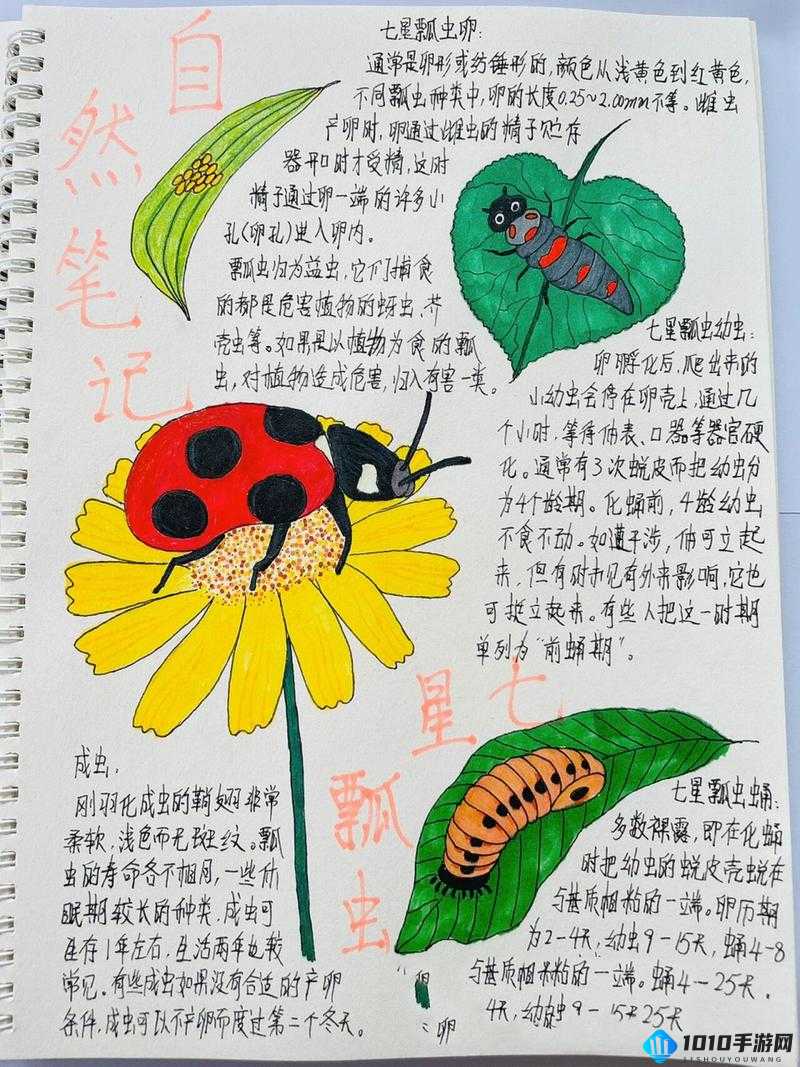 自
然
笔
记
七星瓢虫卵:
通常是卵形或纺锤形的,颜色从浅黄色到红黄色,
不同瓢虫种类中,卵的长度0.25~2.00mm不等。雌虫
产卵时,卵通过雌虫的精子贮存
器开口时才受精,这时
精子通过卵一端的许多小
孔(卵孔)进入卵内。
瓢虫归为益虫,它们捕食
的都是危害植物的蚜虫、介
壳虫等。如果是以植物为食的瓢
虫,对植物造成危害,归入有害一类。
七星瓢虫幼虫:
卵孵化后,爬出来的
小幼虫会停在卵壳上,通过几
个小时,等待体表、口器等器官硬
化。通常有3次蜕皮而把幼虫分
为4个龄期。化蛹前,4龄幼虫
不食不动。如遭干涉,体可立起
来,但有时并没有外来影响,它也
可挺立起来。有些人把这一时期
单列为“前蛹期”。
七
星
瓢
虫
成虫:
刚羽化成虫的鞘翅非常
柔软,浅色而无斑纹。瓢
虫的寿命各不相同,一些休
眠期较长的种类,成虫可
生存1年左右,生活两年也较
常见。有些成虫如果没有合适的产卵
条件,成虫可以不产卵而度过第二个冬天。
七星瓢虫虫蛹:
多数裸露,即在化蛹
时把幼虫的蜕皮壳蜕在
与基质相粘的一端。卵历期
为2-4天,幼虫9-15天,蛹4-8
与基质相粘的一端。蛹4-25天.
4天,幼虫9-15天25天
卵
卵
1010手游网
LISHOUYOUWANG